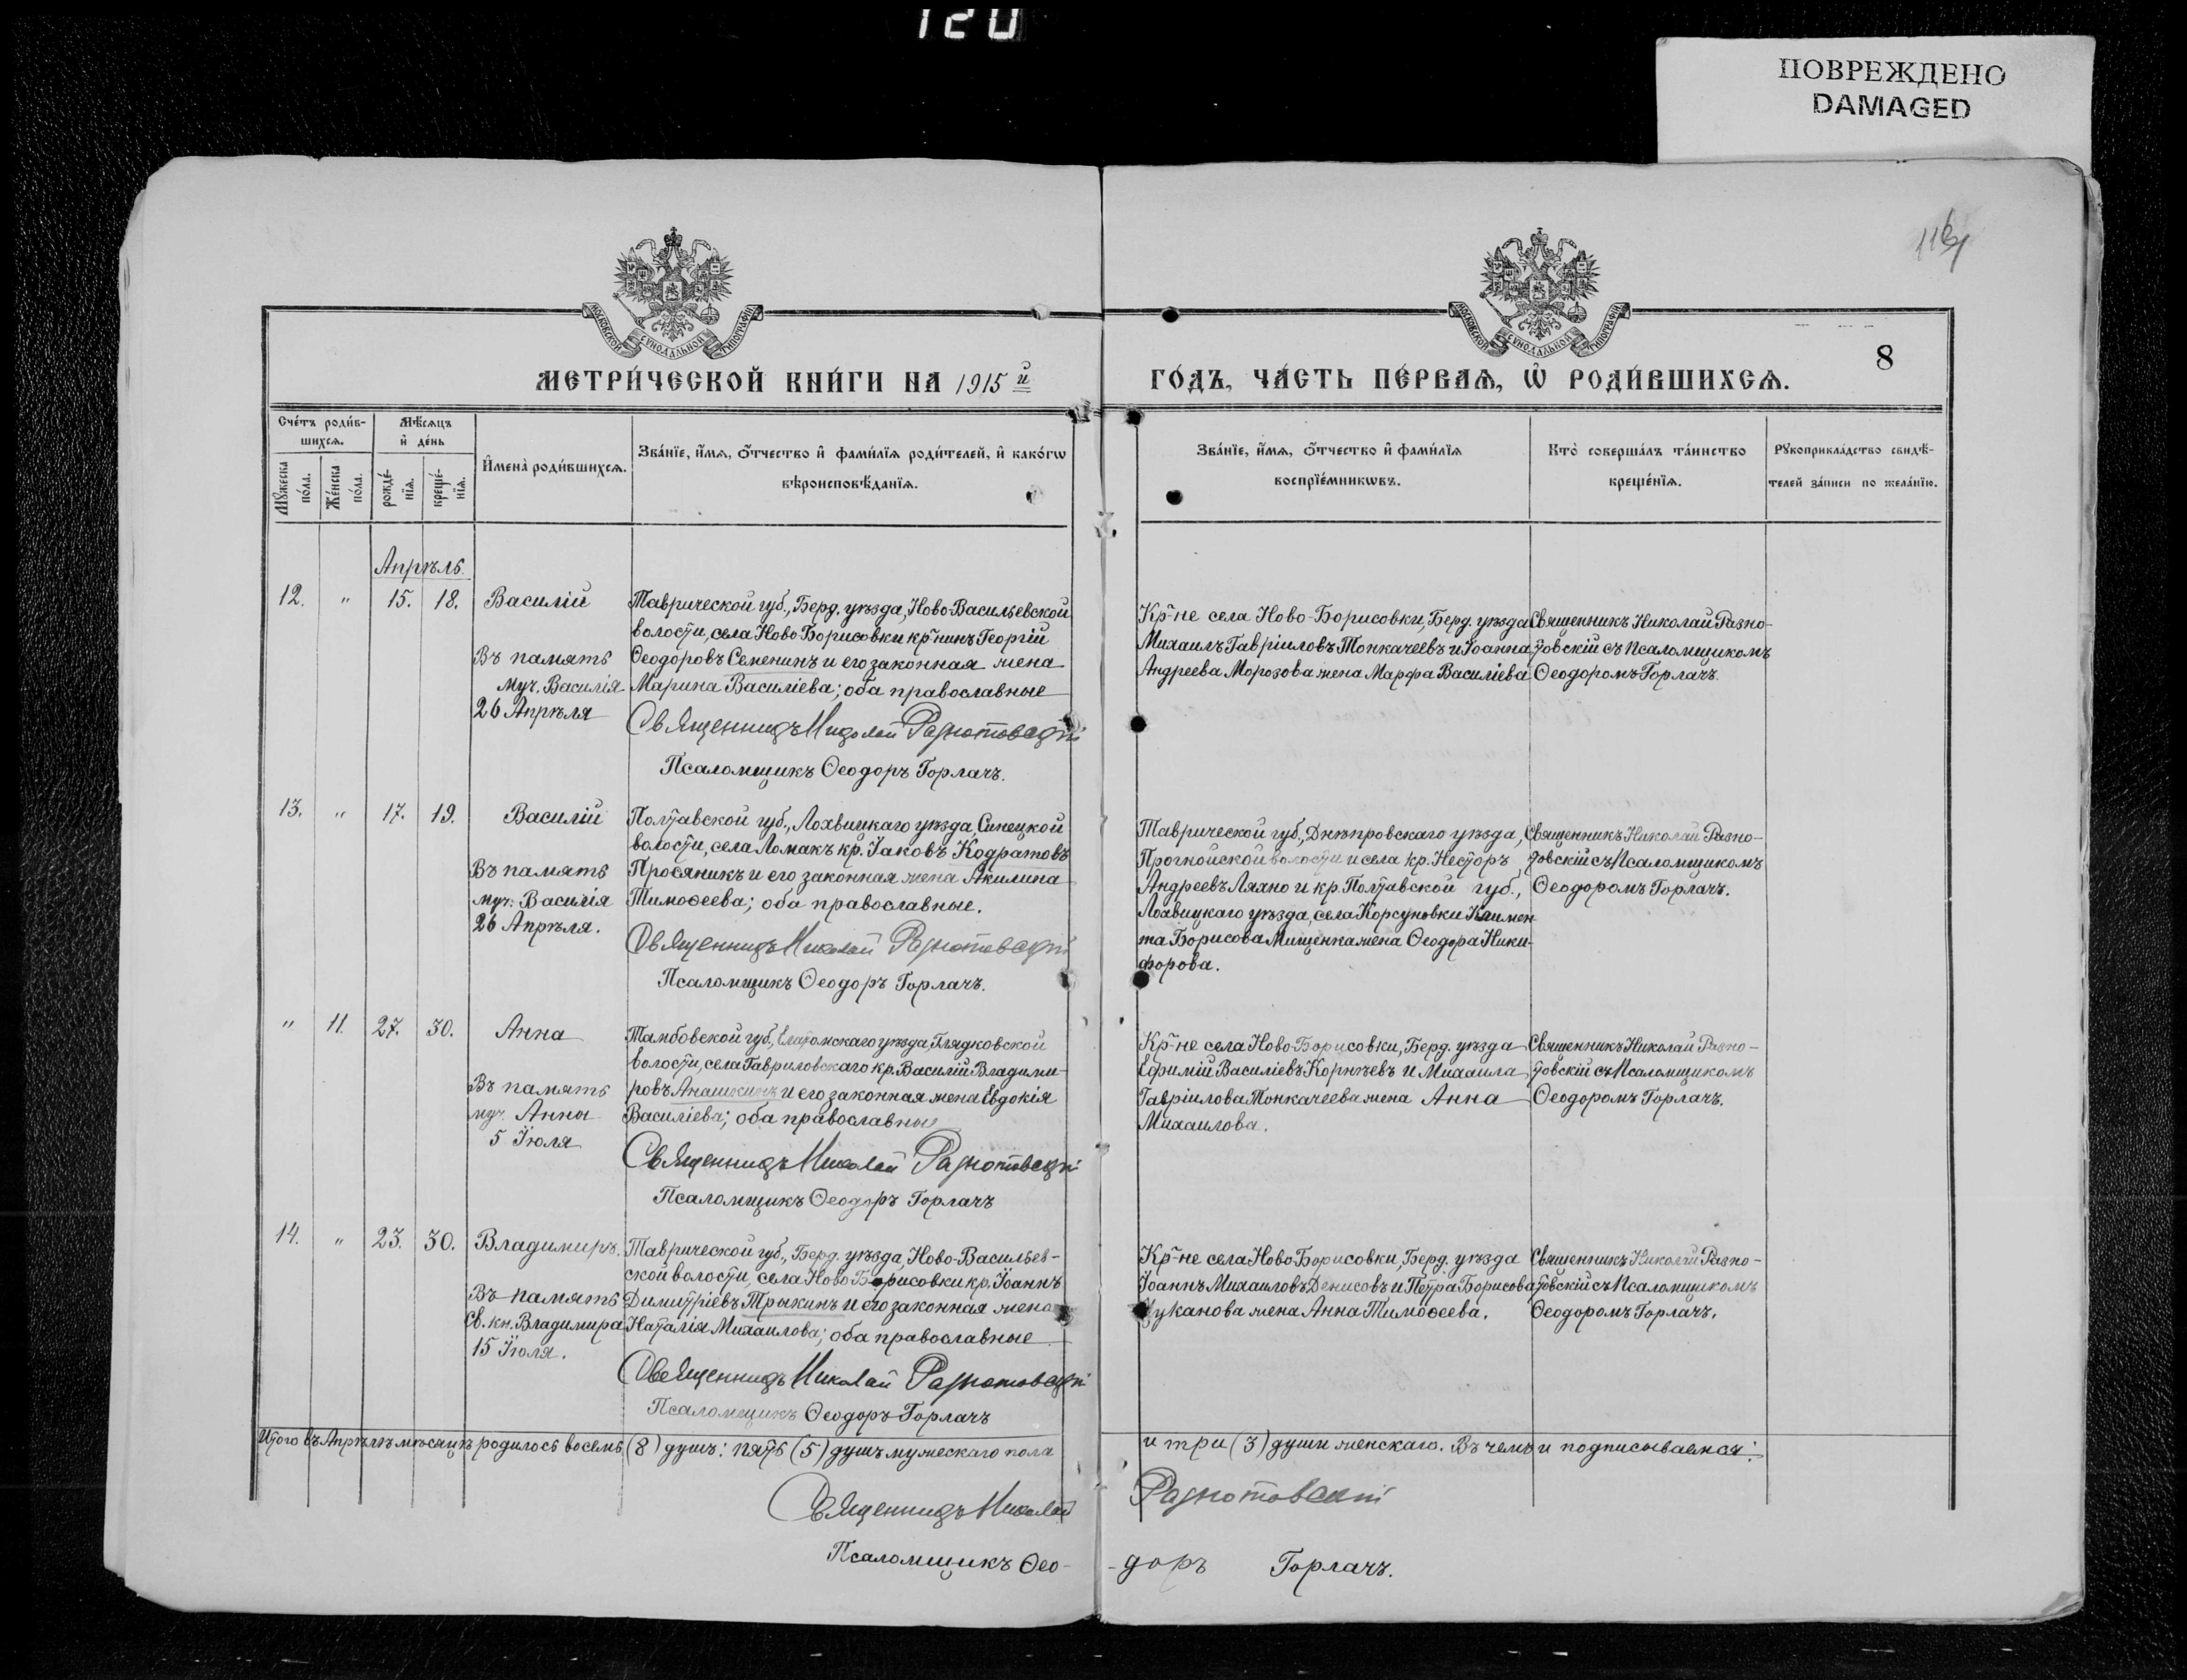 120
ПОВРЕЖДЕНО
DAMAGED
8
МОСКОВСКОЙ СѴНОДАЛЬНОЙ ТИПОГРАФІИ
МОСКОВСКОЙ СѴНОДАЛЬНОЙ ТИПОГРАФІИ
МЕТРИ́ЧЕСКОЙ КНИ́ГИ НА 1915й
ГО́ДЪ, ЧА́СТЬ ПЕ́РВАѦ, Ѡ҆ РОДИ́ВШИХСѦ.
Сче́тъ роди́в-
шихсѧ.
Мꙋ́жеска по́ла.
Же́нска по́ла.
Мѣ́сѧцъ
и҆ де́нь
рожде́-
нїѧ.
креще́-
нїѧ.
И҆мена̀ роди́вшихсѧ.
Зва́нїе, и҆́мѧ, о҆́тчество и҆ фами́лїѧ роди́телей, и҆ како́гѡ
вѣроисповѣ́данїѧ.
Зва́нїе, и҆́мѧ, о҆́тчество и҆ фами́лїѧ
воспрїе́мникѡвъ.
Кто̀ соверша́лъ та́инство
креще́нїѧ.
Рꙋкоприкла́дство свидѣ́-
телей за́писи по жела́нїю.
Апрѣль
12. " 15. 18. Василій
Въ память
муч. Василія
26 Апрѣля
Таврической губ., Берд. уѣзда, Ново-Васильевской
волости, села Ново-Борисовки кр-нинъ Георгій
Ѳеодоровъ Семенинъ и его законная жена
Марина Василіева; оба православные
Священникъ Николай Разнотовскій
Псаломщикъ Ѳеодоръ Горлачъ.
Кр-не села Ново-Борисовки, Берд. уѣзда
Михаилъ Гавріиловъ Тонкачеевъ и Іоанна
Андреева Морозова жена Марфа Василіева
Священникъ Николай Разно-
товскій съ Псаломщикомъ
Ѳеодоромъ Горлачъ.
13. " 17. 19. Василій
Въ память
муч. Василія
26 Апрѣля.
Полтавской губ., Лохвицкаго уѣзда, Синецкой
волости, села Ломакъ кр. Іаковъ Кодратовъ
Просяникъ и его законная жена Акилина
Тимоѳеева; оба православные.
Священникъ Николай Разнотовскій
Псаломщикъ Ѳеодоръ Горлачъ.
Таврической губ., Днѣпровскаго уѣзда,
Прогнойской волости и села кр. Несторъ
Андреевъ Ляхно и кр. Полтавской губ.,
Лохвицкаго уѣзда, села Корсуновки Климен-
та Борисова Мищенка жена Ѳеодора Ники-
форова.
Священникъ Николай Разно-
товскій съ Псаломщикомъ
Ѳеодоромъ Горлачъ.
" 11. 27. 30. Анна
Въ память
муч. Анны
5 Іюля
Тамбовской губ., Елатомскаго уѣзда, Глядковской
волости, села Гавриловскаго кр. Василій Владими-
ровъ Анашкинъ и его законная жена Евдокія
Василіева; оба православные
Священникъ Николай Разнотовскій
Псаломщикъ Ѳеодоръ Горлачъ
Кр-не села Ново-Борисовки, Берд. уѣзда
Ефимій Василіевъ Корнѣевъ и Михаила
Гавріилова Тонкачеева жена Анна
Михаилова.
Священникъ Николай Разно-
товскій съ Псаломщикомъ
Ѳеодоромъ Горлачъ.
14. " 23. 30. Владимиръ.
Въ память
Св. кн. Владимира
15 Іюля.
Таврической губ., Берд. уѣзда, Ново-Васильев-
ской волости, села Ново Борисовки кр. Іоаннъ
Димитріевъ Трыкинъ и его законная жена
Наталія Михаилова; оба православные
Священникъ Николай Разнотовскій
Псаломщикъ Ѳеодоръ Горлачъ
Кр-не села Ново Борисовки, Берд. уѣзда
Іоаннъ Михаиловъ Денисовъ и Петра Борисова
Цуканова жена Анна Тимоѳеева.
Священникъ Николай Разно-
товскій съ Псаломщикомъ
Ѳеодоромъ Горлачъ.
Итого въ Апрѣлѣ мѣсяцѣ родилось восемь (8) душъ: пять (5) душъ мужескаго пола
и три (3) души женскаго. Въ чемъ и подписываемся:
Священникъ Николай Разнотовскій
Псаломщикъ Ѳео- -доръ Горлачъ.